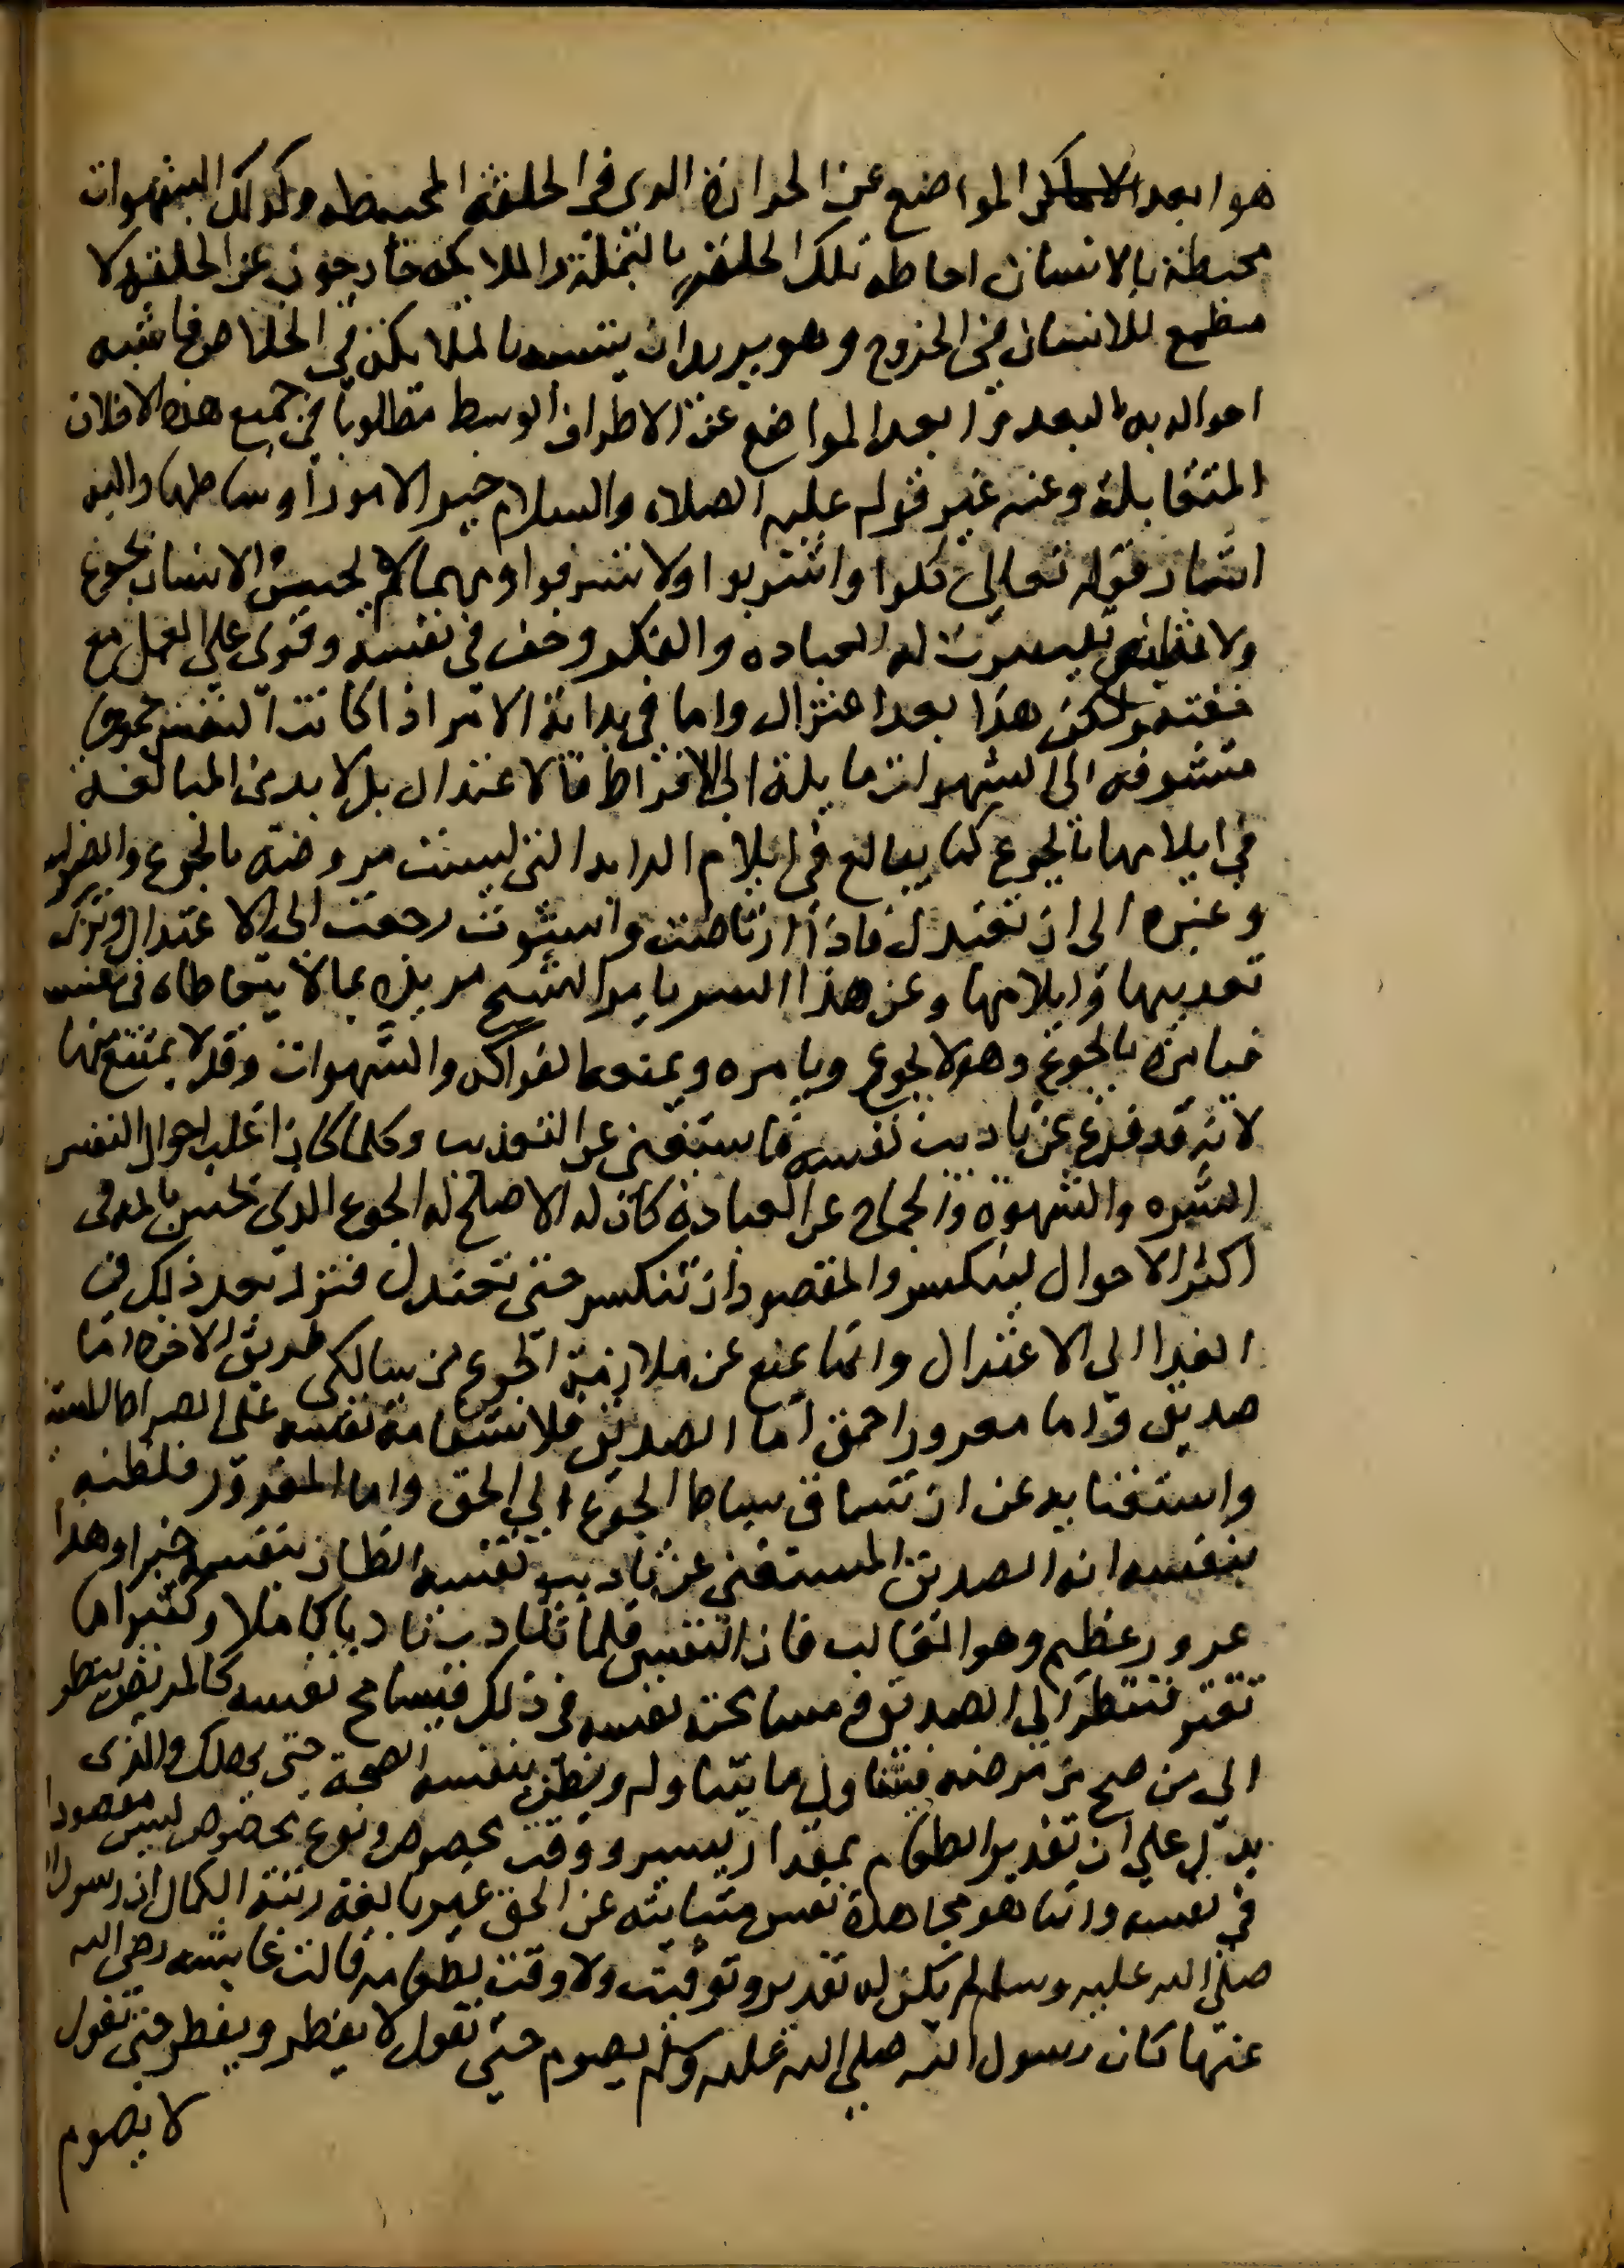 هو ابعد المواضع عن الحرارة الذى فى الحلقة المحيطه وكذلك الشهوات
محيطة بالانسان احاطه تلك الحلقه بالنملة والملايكه خارجون عن الحلقه ولا
مطمع للانسان فى الخروج وهو يريد ان يتشبه بالملايكة في الخلاص فاشبه
احواله به البعد وابعد المواضع عن الاطراف الوسط مطلوبا في جميع هذه الاخلاق
المتقابلة وعنه عبر قوله عليه الصلاه والسلام خير الامور اوساطها واليه
اشار قوله تعالى كلوا واشربوا ولا تسرفوا ومهما لم يحس الانسان بجوع
ولا تيسرت له العباده والفكر وخف في نفسه وقوى على العمل مع
خفته ولكن هذا بعد اعتزال واما في بداية الامر اذا كانت النفس جموحا
متشوفه الى الشهوات مايلة الى الافراط فالاعتدال بل لا بد من المبالغة
في ايلامها بالجوع كما يبالغ في ايلام الدابه التي ليست مروضة بالجوع والضرب
وغيره الى ان تعتدل فاذا ارتاضت واستوت رجعت الى الاعتدال وترك
تعذيبها وايلامها وعن هذا السر يامر الشيخ مريده بما لا يتعاطاه في نفسه
فيامره بالجوع وهو لا يجوع ويامره ويمنعه الفواكه والشهوات وقد لا يمتنع منها
لانه قد فرغ عن تاديب نفسه فاستغنى عن التعذيب وكلما كان اغلب احوال النفس
الشره والشهوة والجماح عن العبادة كان له الاصلح له الجوع الذي تحس بالمه في
اكثر الاحوال لينكسر والمقصود ان تنكسر حتى تعتدل فترد بعد ذلك في
الغدا الى الاعتدال وانما يمنع عن ملازمة الجوع من سالكي طريق الاخره اما
صديق واما مغرور احمق اما الصديق فلاستقامة نفسه على الصراط المستقيم
واستغنايه عن ان تساق بسياط الجوع الى الحق واما المغرور فلظنه
بنفسه انه الصديق المستغني عن تاديب نفسه الظان بنفسه خيرا وهذا
غرور عظيم وهو الغالب فان النفس قلما تتادب تاديبا كاملا وكثيرا ما
تغتر فتنظر الى الصديق ومسامحته نفسه في ذلك فيسامح نفسه كالمريض ينظر
الى من صح من مرضه فيتناول ما يتناوله ويظن بنفسه الصحة حتى يهلك والذى
يدل على ان تقدير الطعام بمقدار يسير ووقت مخصوص ونوع مخصوص ليس مقصودا
في نفسه وانما هو مجاهدة نفس متنائيه عن الحق غير بالغة رتبة الكمال ان رسول الله
صلى الله عليه وسلم لم يكن له تقدير وتوقيت ولا وقت لطعامه قالت عايشه رضي الله
عنها كان رسول الله صلى الله عليه وسلم يصوم حتى نقول لا يفطر ويفطر حتى نقول
لا يصوم